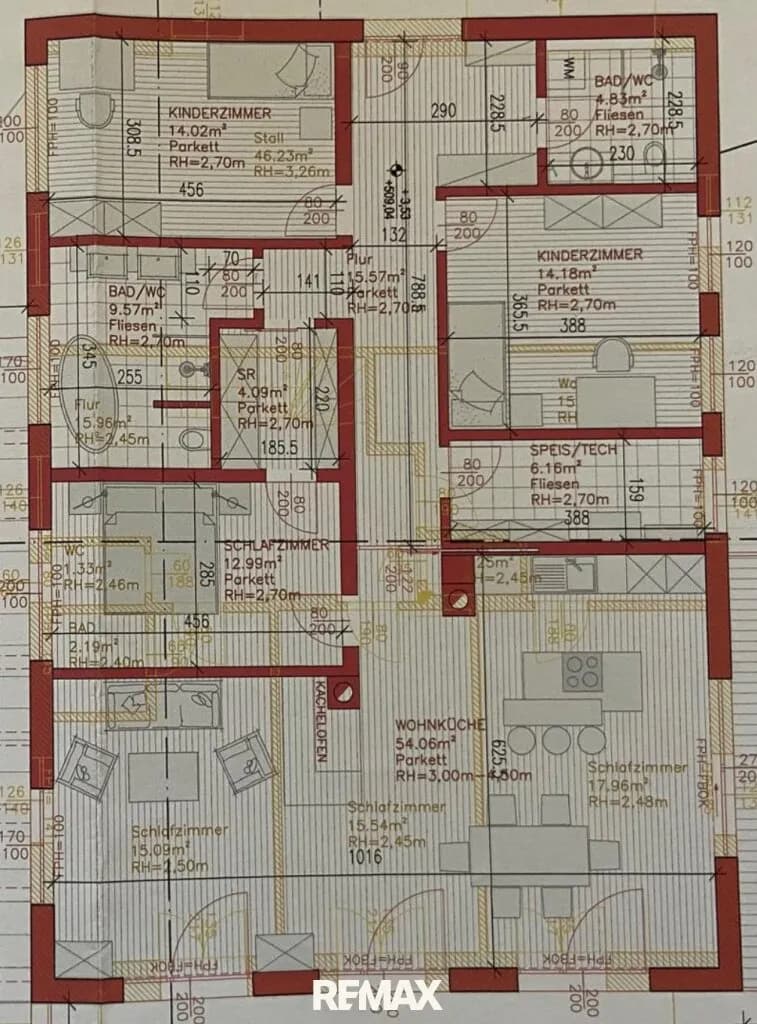 KINDERZIMMER
14.02m²
Parkett
RH=2,70m
Stall
46.23m²
RH=3,26m
308.5
456
FPH=100
80
200
90
200
290
228.5
WM
BAD/WC
4.83m²
Fliesen
RH=2,70m
228.5
80
200
230
+3,53
+509,04
132
80
200
112
131
KINDERZIMMER
14.18m²
Parkett
RH=2,70m
365.5
388
FPH=100
120
100
FPH=100
120
100
Flur
15.57m²
Parkett
RH=2,70m
788.5
70
80
200
110
141
110
BAD/WC
9.57m²
Fliesen
RH=2,70m
345
255
Flur
15.96m²
RH=2,45m
126
131
170
100
80
200
SR
4.09m²
Parkett
RH=2,70m
220
185.5
SPEIS/TECH
6.16m²
Fliesen
RH=2,70m
80
200
159
388
FPH=100
120
100
126
140
80
200
SCHLAFZIMMER
12.99m²
Parkett
RH=2,70m
285
456
WC
1.33m²
RH=2,46m
60
188
BAD
2.19m²
RH=2,40m
FPH=100
80
200
KACHELOFEN
WOHNKÜCHE
54.06m²
Parkett
RH=3,00m-4,50m
Schlafzimmer
17.96m²
RH=2,48m
FPH=FBOK
Schlafzimmer
15.54m²
RH=2,45m
Schlafzimmer
15.09m²
RH=2,50m
126
140
170
100
FPH=100
1016
FPH=FBOK
FPH=FBOK
FPH=FBOK
200
200
200
RE/MAX